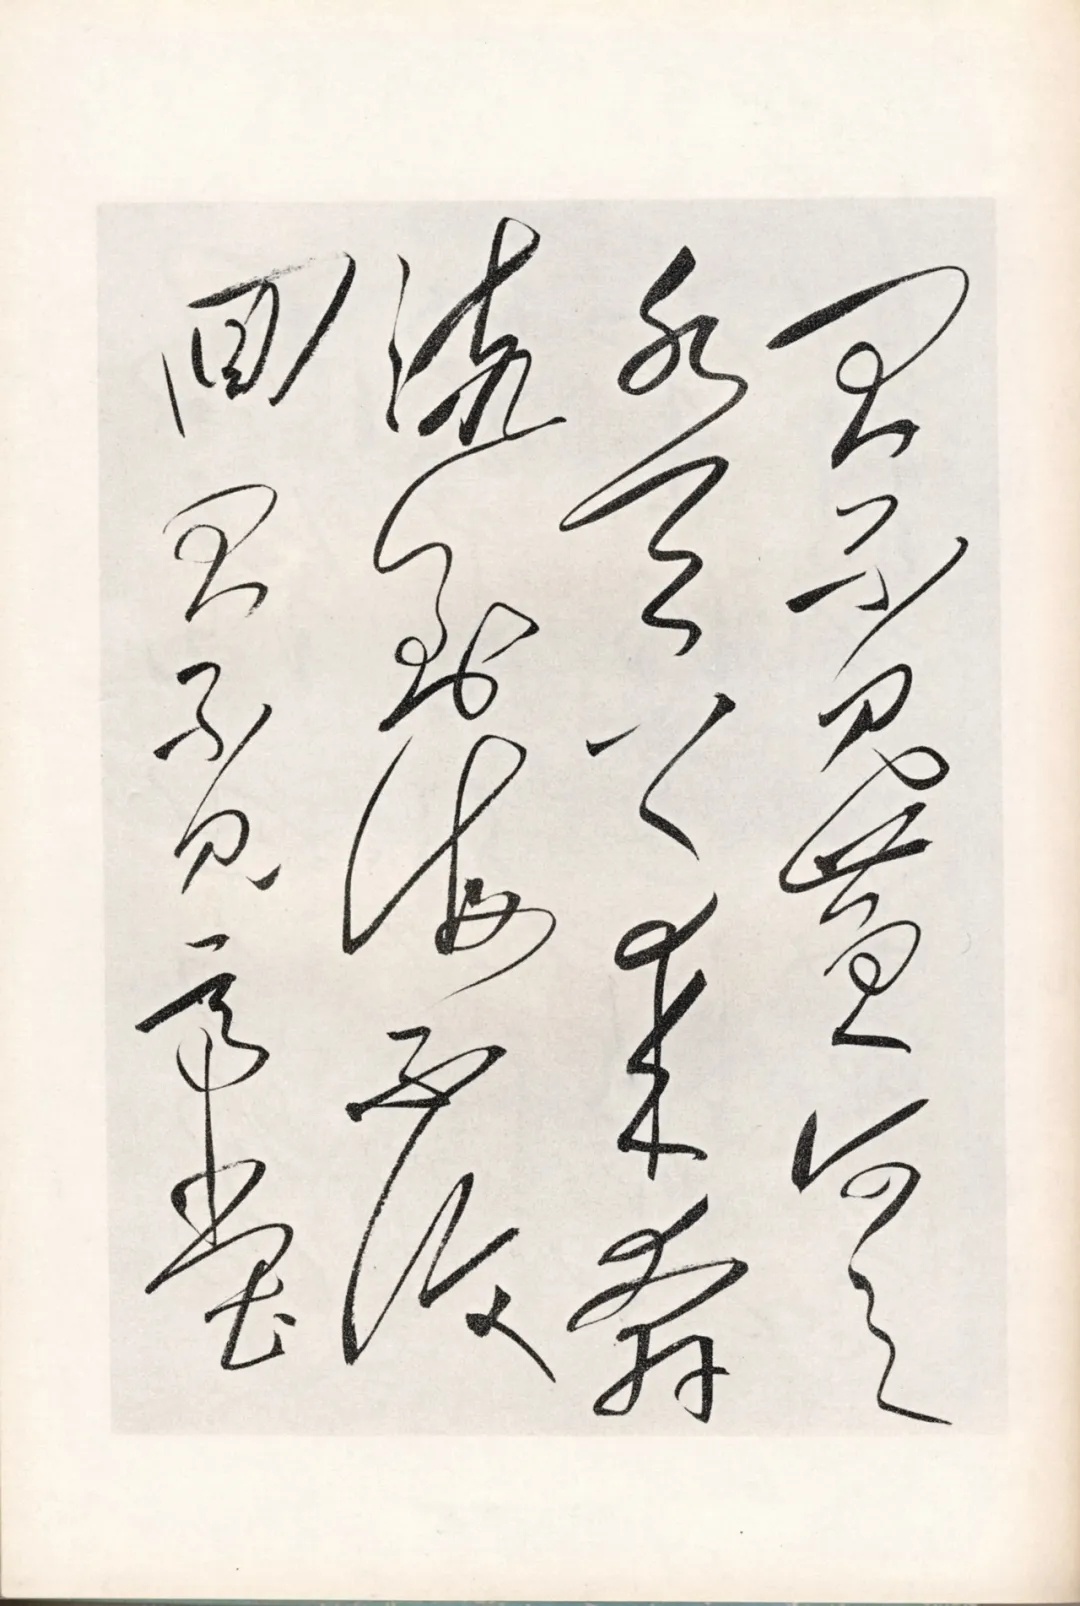 君不见黄河之
水天上来奔
流到海不復
回君不见高堂